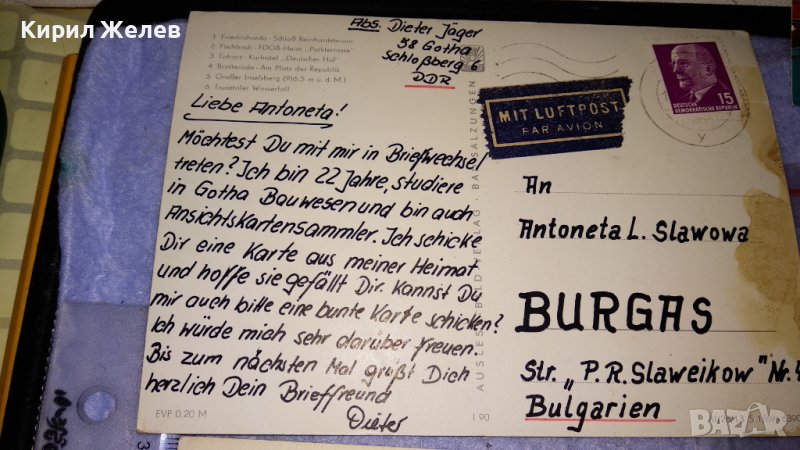 Кирил Желев
Abs: Dieter Jäger
58 Gotha
Schloßberg 6
DDR
1 Friedrichroda - Schloß Reinhardsbrunn
2 Fischbach - FDGB-Heim „Parkterrasse"
3 Tabarz - Kurhotel „Deutscher Hof"
4 Brotterode - Am Platz der Republik
5 Großer Inselsberg (916,5 m ü. d. M.)
6 Trusetaler Wasserfall
Liebe Antoneta!
Möchtest Du mit mir in Briefwechsel
treten? Ich bin 22 Jahre, studiere
in Gotha Bauwesen und bin auch
Ansichtskartensammler. Ich schicke
Dir eine Karte aus meiner Heimat
und hoffe sie gefällt Dir. Kannst Du
mir auch bitte eine bunte Karte schicken?
Ich würde mich sehr darüber freuen.
Bis zum nächsten Mal grüßt Dich
herzlich Dein Brieffreund
Dieter
EVP 0,20 M
I 90
BAD SALZUNGEN
MIT LUFTPOST
PAR AVION
15
DEUTSCHE
DEMOKRATISCHE REPUBLIK
y
An
Antoneta L. Slawowa
BURGAS
Str. „P.R. Slaweikow" Nr. 4
Bulgarien
BAZAR